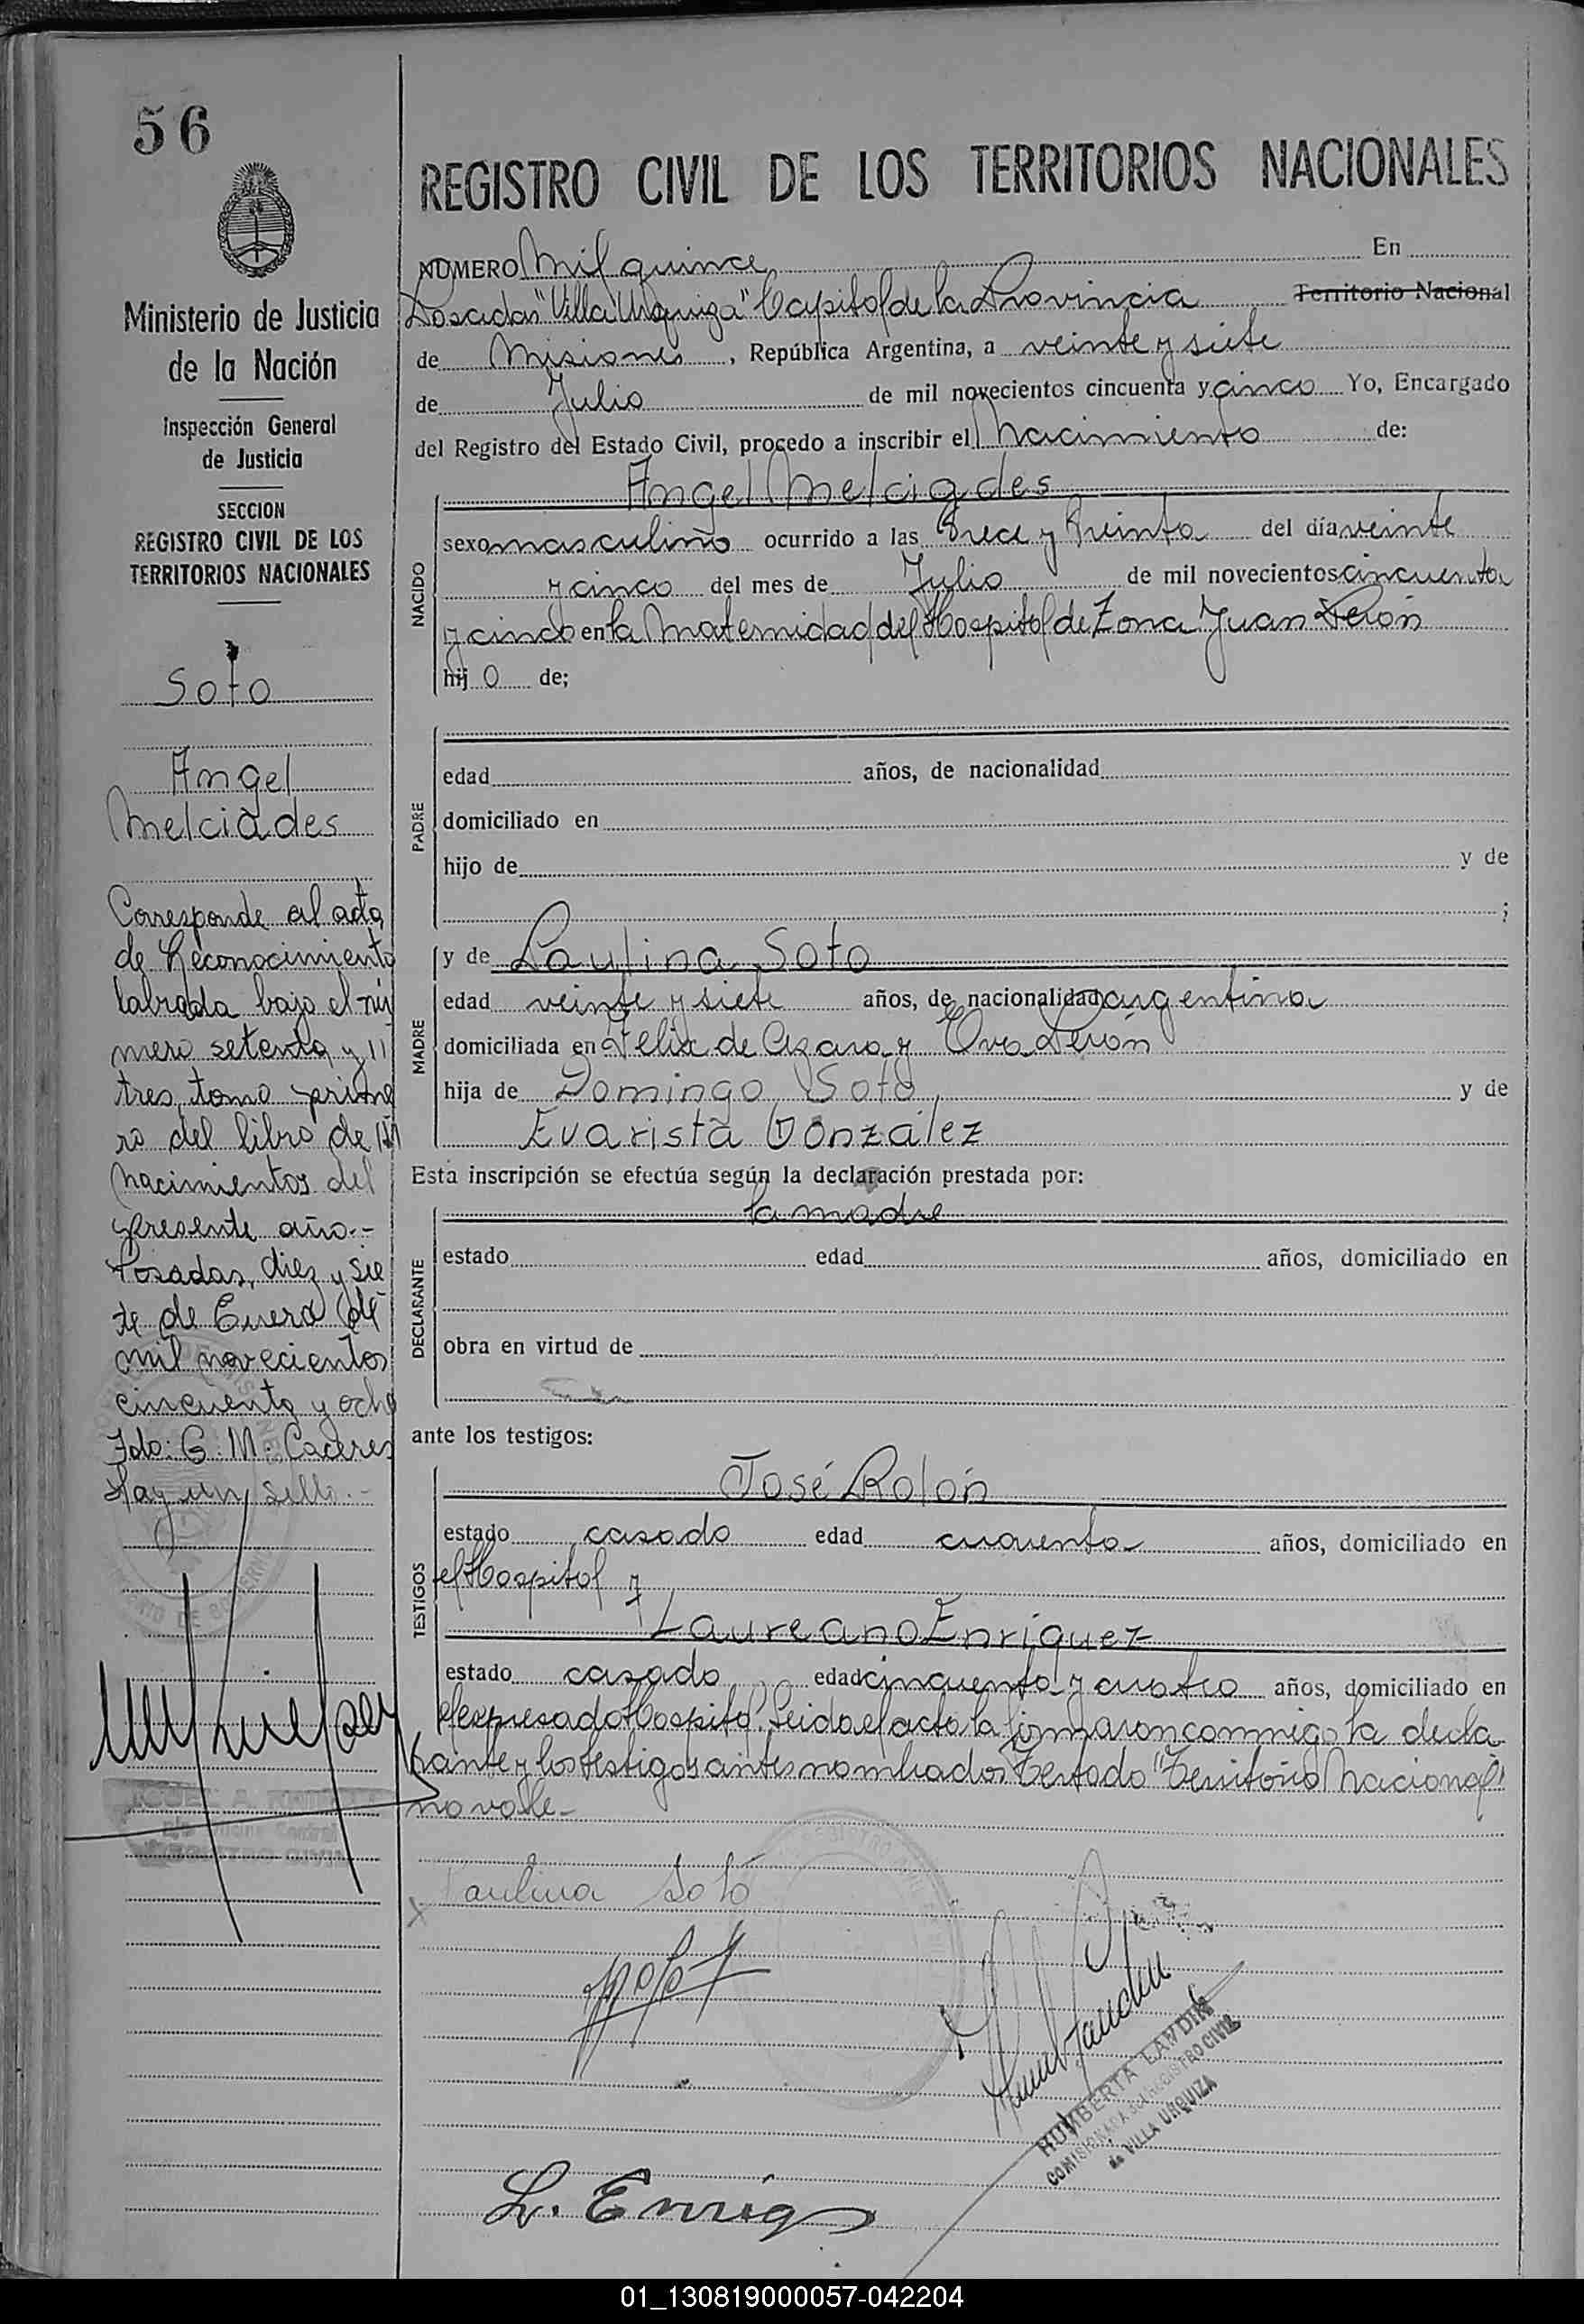 56
Ministerio de Justicia
de la Nación
Inspección General
de Justicia
SECCION
REGISTRO CIVIL DE LOS
TERRITORIOS NACIONALES
Soto
Angel
Melciades
Corresponde al acta
de Reconocimiento
labrada bajo el nú
mero setenta y
tres, tomo prime
ro del libro de
Nacimientos del
presente año.-
Posadas, diez y sie
te de Enero de
mil novecientos
cincuenta y ocho
Fdo: G. M. Caceres
Hay un sello.-
REGISTRO CIVIL DE LOS TERRITORIOS NACIONALES
NUMERO Mil quince En
Posadas "Villa Urquiza" Capital de la Provincia Territorio Nacional
de Misiones, República Argentina, a veinte y siete
de Julio de mil novecientos cincuenta y cinco Yo, Encargado
del Registro del Estado Civil, procedo a inscribir el Nacimiento de:
Angel Melciades
NACIDO
sexo masculino ocurrido a las trece y treinta del día veinte
y cinco del mes de Julio de mil novecientos cincuenta
y cinco en la Maternidad del Hospital de Zona Juan Perón
hij o de;
PADRE
edad años, de nacionalidad
domiciliado en
hijo de y de
;
MADRE
y de Paulina Soto
edad veinte y siete años, de nacionalidad argentina
domiciliada en Felix de Azara y Eva Perón
hija de Domingo Soto y de
Evarista González
Esta inscripción se efectúa según la declaración prestada por:
la madre
DECLARANTE
estado edad años, domiciliado en
obra en virtud de
ante los testigos:
TESTIGOS
José Rolón
estado casado edad cuarenta años, domiciliado en
el Hospital y
Laureano Enriquez
estado casado edad cincuenta y cuatro años, domiciliado en
el expresado Hospital. Leida el acta la firmaron conmigo la decla
rante y los testigos antes nombrados Testado "Territorio Nacional"
no vale-
Paulina Soto
HUMBERTA LANDIN
COMISIONADA del REGISTRO CIVIL
de VILLA URQUIZA
L. Enriq
01_130819000057-042204